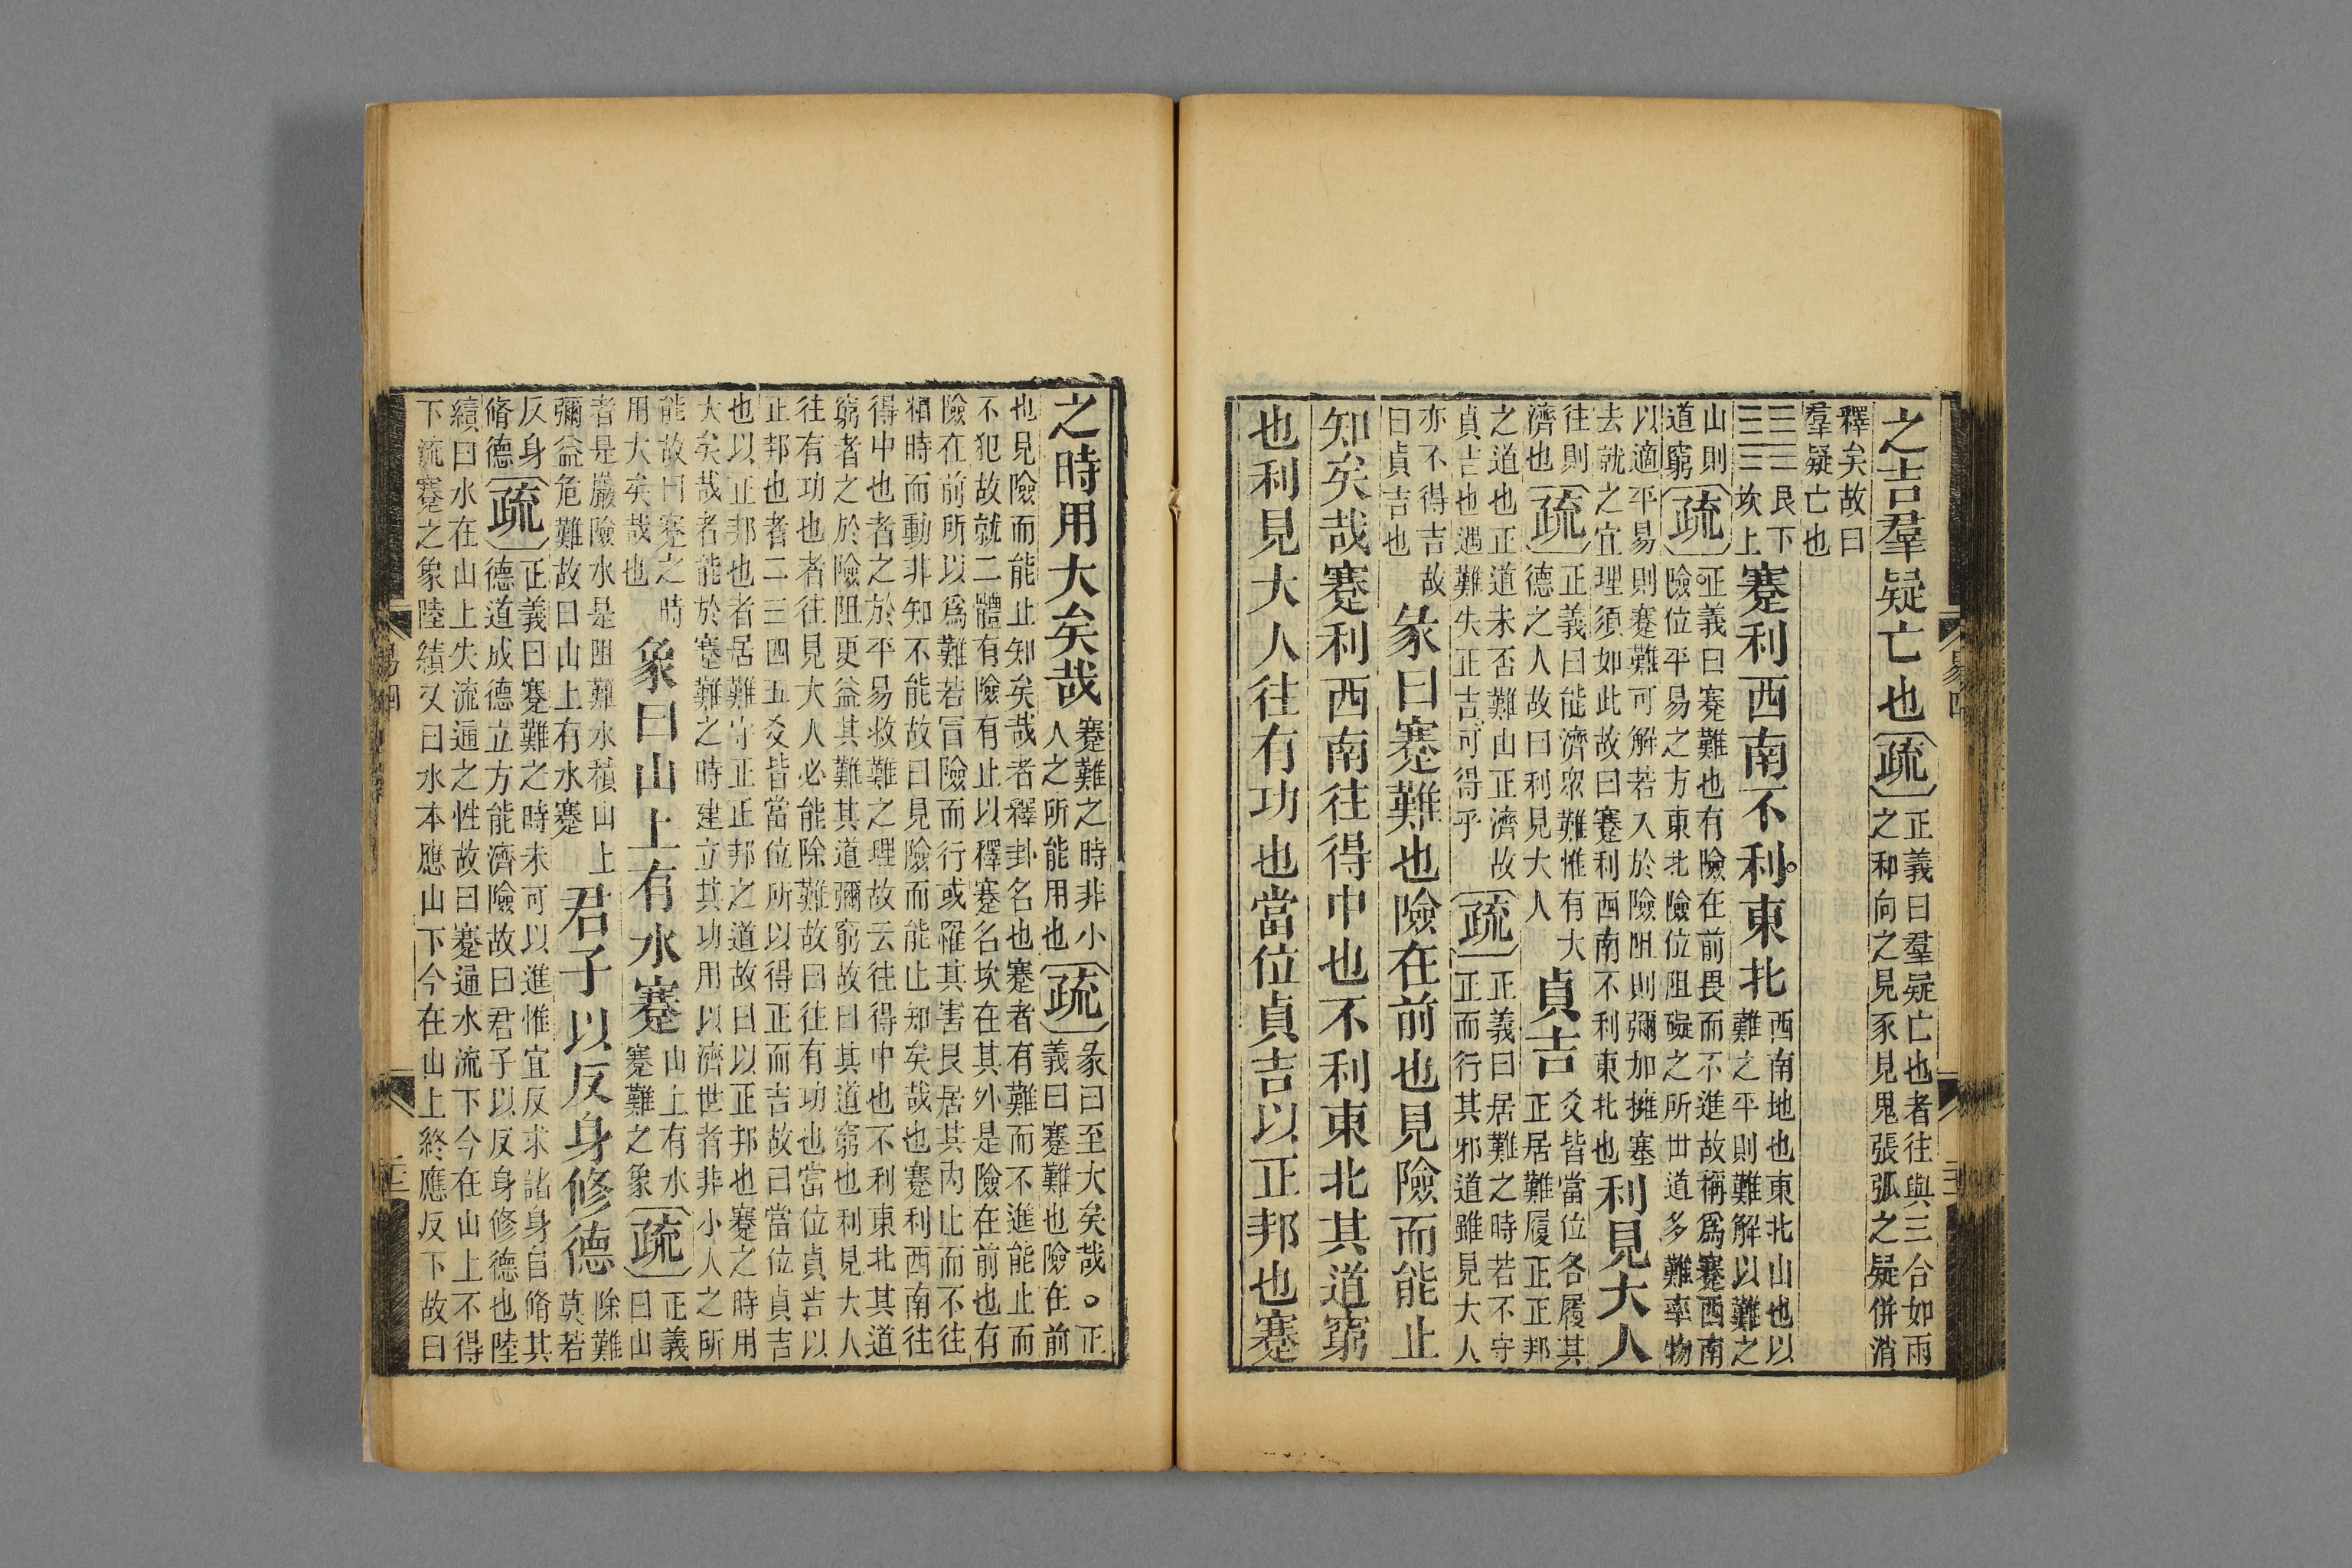 之吉羣疑亡也疏正義曰羣疑亡也者往與三合如雨
之和向之見豕見鬼張弧之疑併消
釋矣故曰
羣疑亡也
艮下
坎上
蹇利西南不利東北西南地也東北山也以
難之平則難解以難之
山則
道窮
疏正義曰蹇難也有險在前畏而不進故稱爲蹇西南
險位平易之方東北險位阻礙之所世道多難率物
以適平易則蹇難可解若入於險阻則彌加擁塞
去就之宜理須如此故曰蹇利西南不利東北也
利見大人
往則
濟也
疏正義曰能濟衆難惟有大
德之人故曰利見大人
貞吉爻皆當位各履其
正居難履正正邦
之道也正道未否難由正濟故
貞吉也遇難失正吉可得乎
疏正義曰居難之時若不守
正而行其邪道雖見大人
亦不得吉故
曰貞吉也
彖曰蹇難也險在前也見險而能止
知矣哉蹇利西南往得中也不利東北其道窮
也利見大人往有功也當位貞吉以正邦也蹇
易四
之時用大矣哉蹇難之時非小
人之所能用也
疏彖曰至大矣哉○正
義曰蹇難也險在前
也見險而能止知矣哉者釋卦名也蹇者有難而不進能止而
不犯故就二體有險有止以釋蹇名坎在其外是險在前也有
險在前所以爲難若冒險而行或罹其害艮居其內止而不往
相時而動非知不能故曰見險而能止知矣哉也蹇利西南往
得中也者之於平易救難之理故云往得中也不利東北其道
窮者之於險阻更益其難其道彌窮故曰其道窮也利見大人
往有功也者往見大人必能除難故曰往有功也當位貞吉以
正邦也者二三四五爻皆當位所以得正而吉故曰當位貞吉
也以正邦也者居難守正正邦之道故曰以正邦也蹇之時用
大矣哉者能於蹇難之時建立其功用以濟世者非小人之所
能故曰蹇之時
用大矣哉也
象曰山上有水蹇山上有水
蹇難之象
疏正義
曰山
者是巖險水是阻難水積山上
彌益危難故曰山上有水蹇
君子以反身修德除難
莫若
反身
脩德
疏正義曰蹇難之時未可以進惟宜反求諸身自脩其
德道成德立方能濟險故曰君子以反身修德也陸
績曰水在山上失流通之性故曰蹇通水流下今在山上不得
下流蹇之象陸績又曰水本應山下今在山上終應反下故曰